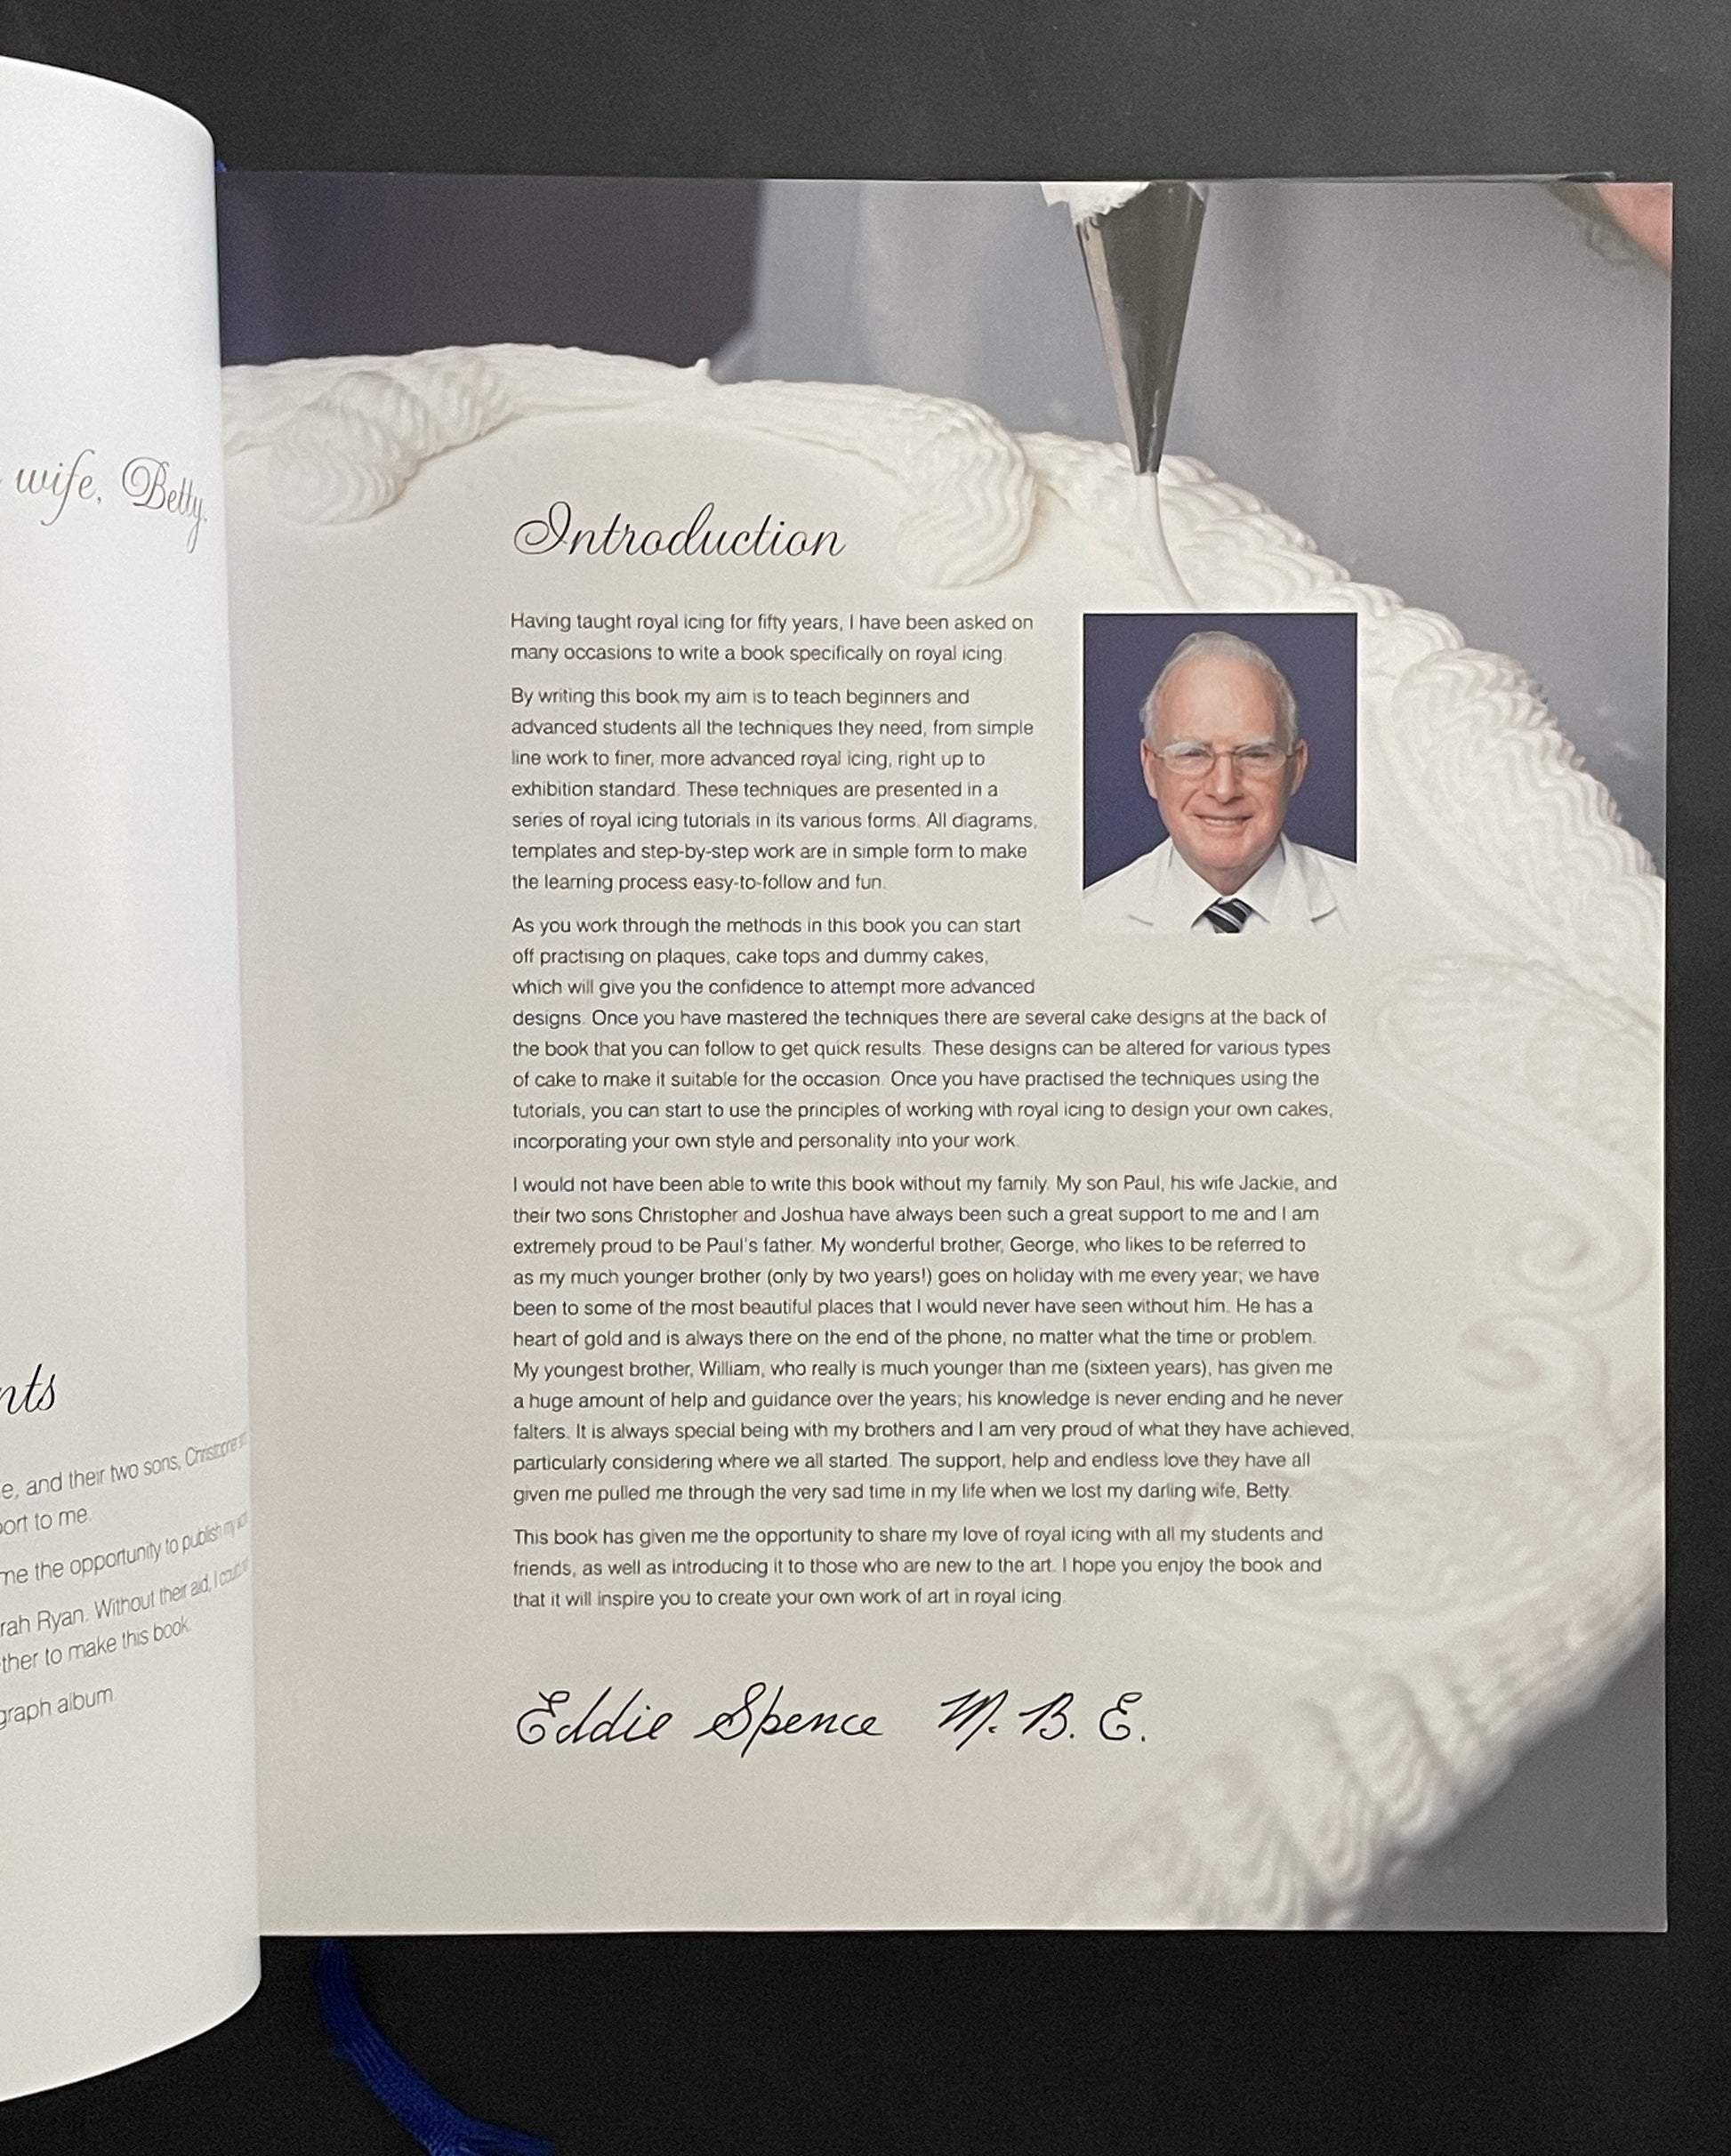 wife, Betty.
nts
e, and their two sons, Christopher
port to me.
me the opportunity to publish my
rah Ryan. Without their aid, I
ther to make this book.
graph album
Introduction
Having taught royal icing for fifty years, I have been asked on
many occasions to write a book specifically on royal icing.
By writing this book my aim is to teach beginners and
advanced students all the techniques they need, from simple
line work to finer, more advanced royal icing, right up to
exhibition standard. These techniques are presented in a
series of royal icing tutorials in its various forms. All diagrams,
templates and step-by-step work are in simple form to make
the learning process easy-to-follow and fun.
As you work through the methods in this book you can start
off practising on plaques, cake tops and dummy cakes,
which will give you the confidence to attempt more advanced
designs. Once you have mastered the techniques there are several cake designs at the back of
the book that you can follow to get quick results. These designs can be altered for various types
of cake to make it suitable for the occasion. Once you have practised the techniques using the
tutorials, you can start to use the principles of working with royal icing to design your own cakes,
incorporating your own style and personality into your work.
I would not have been able to write this book without my family. My son Paul, his wife Jackie, and
their two sons Christopher and Joshua have always been such a great support to me and I am
extremely proud to be Paul's father. My wonderful brother, George, who likes to be referred to
as my much younger brother (only by two years!) goes on holiday with me every year; we have
been to some of the most beautiful places that I would never have seen without him. He has a
heart of gold and is always there on the end of the phone, no matter what the time or problem.
My youngest brother, William, who really is much younger than me (sixteen years), has given me
a huge amount of help and guidance over the years; his knowledge is never ending and he never
falters. It is always special being with my brothers and I am very proud of what they have achieved,
particularly considering where we all started. The support, help and endless love they have all
given me pulled me through the very sad time in my life when we lost my darling wife, Betty.
This book has given me the opportunity to share my love of royal icing with all my students and
friends, as well as introducing it to those who are new to the art. I hope you enjoy the book and
that it will inspire you to create your own work of art in royal icing.
Eddie Spence M.B.E.